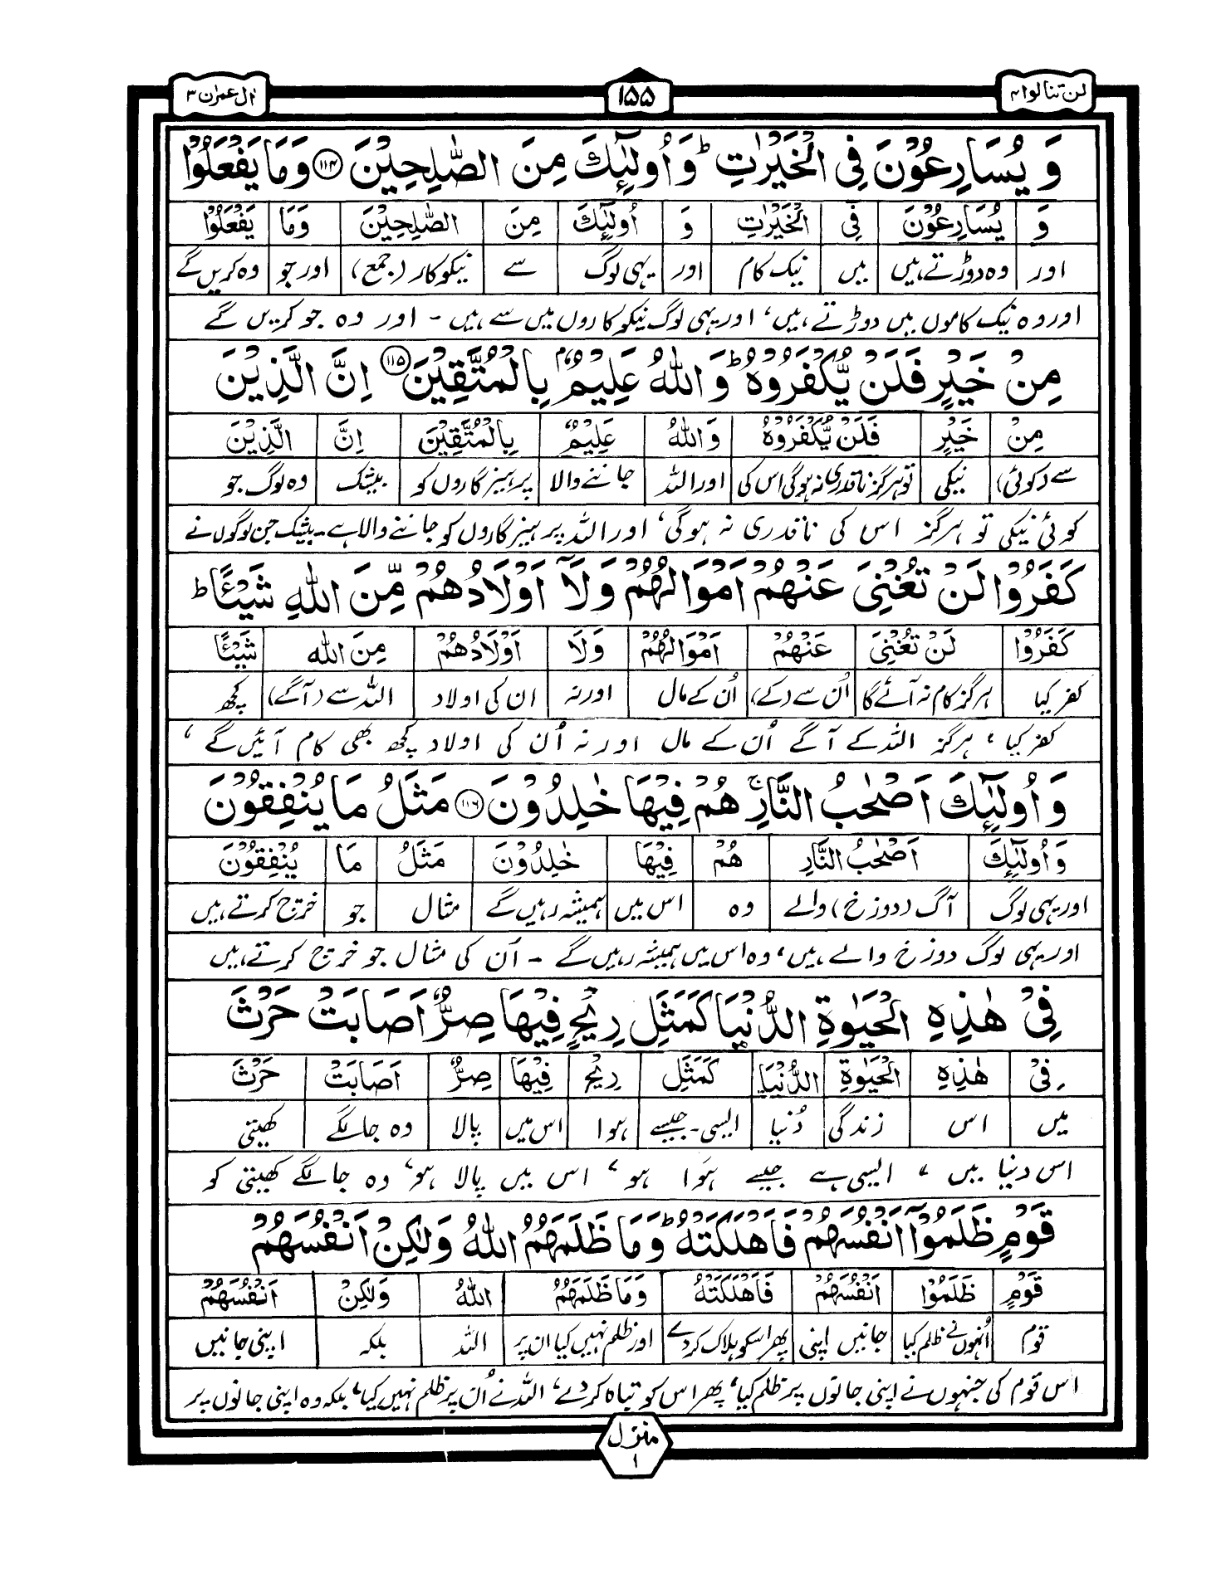 لن تنالوا ۴
۱۵۵
اٰل عمران ۳
وَ يُسَارِعُوْنَ فِي الْخَيْرٰتِ ؕ وَ اُولٰٓئِكَ مِنَ الصّٰلِحِيْنَ ﴿۱۱۴﴾ وَ مَا يَفْعَلُوْا
وَ يُسَارِعُوْنَ فِي الْخَيْرٰتِ وَ اُولٰٓئِكَ مِنَ الصّٰلِحِيْنَ وَمَا يَفْعَلُوْا
اور وہ دوڑتے ہیں میں نیک کام اور یہی لوگ سے نیکوکار (جمع) اور جو وہ کریں گے
اور وہ نیک کاموں میں دوڑتے ہیں، اور یہی لوگ نیکو کاروں میں سے ہیں - اور وہ جو کریں گے
مِنْ خَيْرٍ فَلَنْ يُّكْفَرُوْهُ ؕ وَاللّٰهُ عَلِيْمٌۢ بِالْمُتَّقِيْنَ ﴿۱۱۵﴾ اِنَّ الَّذِيْنَ
مِنْ خَيْرٍ فَلَنْ يُّكْفَرُوْهُ وَاللّٰهُ عَلِيْمٌ بِالْمُتَّقِيْنَ اِنَّ الَّذِيْنَ
سے (کوئی) نیکی تو ہرگز ناقدری نہ ہوگی اس کی اور اللہ جاننے والا پرہیزگاروں کو بیشک وہ لوگ جو
کوئی نیکی تو ہرگز اس کی ناقدری نہ ہوگی، اور اللہ پرہیزگاروں کو جاننے والا ہے - بیشک جن لوگوں نے
كَفَرُوْا لَنْ تُغْنِيَ عَنْهُمْ اَمْوَالُهُمْ وَلَاۤ اَوْلَادُهُمْ مِّنَ اللّٰهِ شَيْـًٔا ؕ
كَفَرُوْا لَنْ تُغْنِيَ عَنْهُمْ اَمْوَالُهُمْ وَلَا اَوْلَادُهُمْ مِنَ اللّٰه شَيْـًٔا
کفر کیا ہرگز کام نہ آئے گا اُن سے (کے) اُن کے مال اور نہ ان کی اولاد اللہ سے (آگے) کچھ
کفر کیا، ہرگز اللہ کے آگے اُن کے مال اور نہ اُن کی اولاد کچھ بھی کام آئیں گے ،
وَ اُولٰٓئِكَ اَصْحٰبُ النَّارِ ۚ هُمْ فِيْهَا خٰلِدُوْنَ ﴿۱۱۶﴾ مَثَلُ مَا يُنْفِقُوْنَ
وَ اُولٰٓئِكَ اَصْحٰبُ النَّارِ هُمْ فِيْهَا خٰلِدُوْنَ مَثَلُ مَا يُنْفِقُوْنَ
اور یہی لوگ آگ (دوزخ) والے وہ اس میں ہمیشہ رہیں گے مثال جو خرچ کرتے ہیں
اور یہی لوگ دوزخ والے ہیں، وہ اس میں ہمیشہ رہیں گے - اُن کی مثال جو خرچ کرتے ہیں
فِيْ هٰذِهِ الْحَيٰوةِ الدُّنْيَا كَمَثَلِ رِيْحٍ فِيْهَا صِرٌّ اَصَابَتْ حَرْثَ
فِيْ هٰذِهِ الْحَيٰوةِ الدُّنْيَا كَمَثَلِ رِيْحٍ فِيْهَا صِرٌّ اَصَابَتْ حَرْثَ
میں اس زندگی دُنیا ایسی - جیسے ہوا اس میں پالا وہ جا لگے کھیتی
اس دنیا میں ، ایسی ہے جیسے ہَوا ہو، اس میں پالا ہو، وہ جا لگے کھیتی کو
قَوْمٍ ظَلَمُوْۤا اَنْفُسَهُمْ فَاَهْلَكَتْهُ ؕ وَ مَا ظَلَمَهُمُ اللّٰهُ وَلٰكِنْ اَنْفُسَهُمْ
قَوْمٍ ظَلَمُوْا اَنْفُسَهُمْ فَاَهْلَكَتْهُ وَمَا ظَلَمَهُمُ اللّٰهُ وَلٰكِنْ اَنْفُسَهُمْ
قوم اُنہوں نے ظلم کیا جانیں اپنی پھر اسکو ہلاک کر دے اور ظلم نہیں کیا ان پر اللہ بلکہ اپنی جانیں
اس قوم کی جنہوں نے اپنی جانوں پر ظلم کیا، پھر اس کو تباہ کر دے، اللہ نے اُن پر ظلم نہیں کیا، بلکہ وہ اپنی جانوں پر
منزل
۱